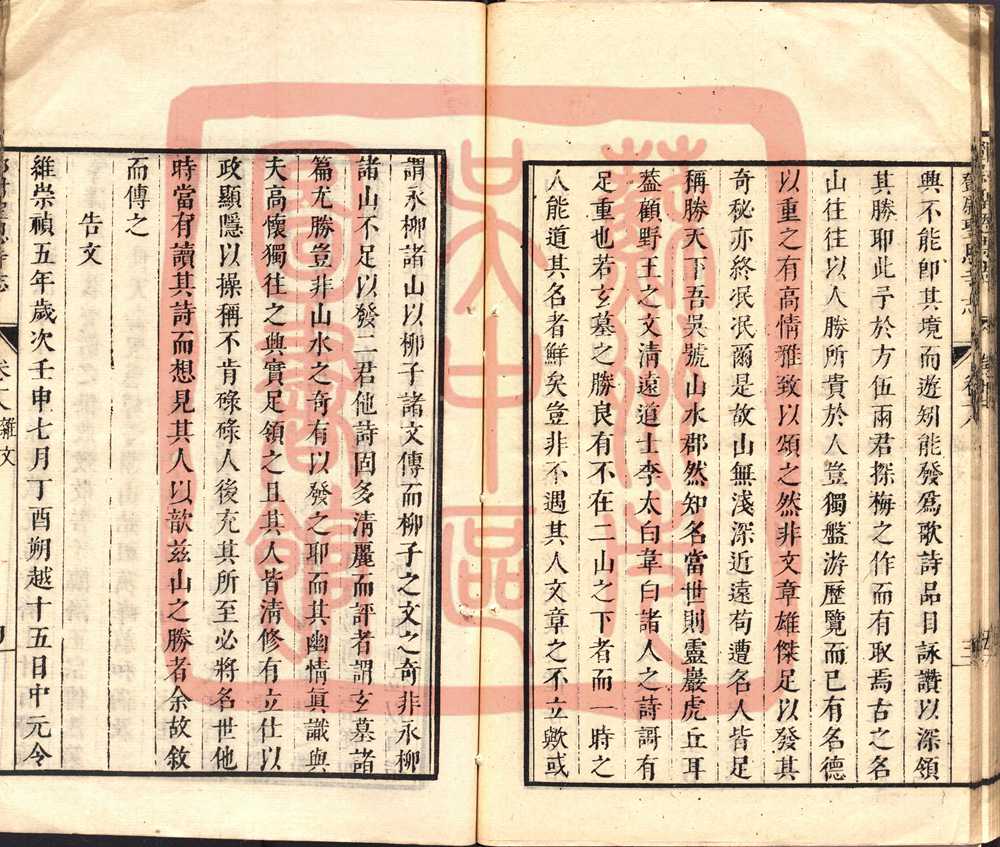 興不能卽其境而遊矧能發爲歌詩品目詠讚以深領
其勝耶此予於方伍兩君探梅之作而有取焉古之名
山往往以人勝所貴於人豈獨盤游歷覽而已有名德
以重之有高情雅致以頌之然非文章雄傑足以發其
奇秘亦終泯泯爾是故山無淺深近遠苟遭名人皆足
稱勝天下吾吳號山水郡然知名當世則靈巖虎丘耳
蓋顧野王之文清遠道士李太白韋白諸人之詩謌有
足重也若玄墓之勝良有不在二山之下者而一時之
人能道其名者鮮矣豈非不遇其人文章之不立歟或
謂永柳諸山以柳子諸文傳而柳子之文之奇非永柳
諸山不足以發二君他詩固多淸麗而評者謂玄墓諸
篇尤勝豈非山水之奇有以發之耶而其幽情眞識與
夫高懷獨往之興實足領之且其人皆淸修有立仕以
政顯隱以操稱不肯碌碌人後充其所至必將名世他
時當有讀其詩而想見其人以歆茲山之勝者余故敘
而傳之
告文
維崇禎五年歲次壬申七月丁酉朔越十五日中元令
卷之八 雜文
蘇州市
吳中區
圖書館